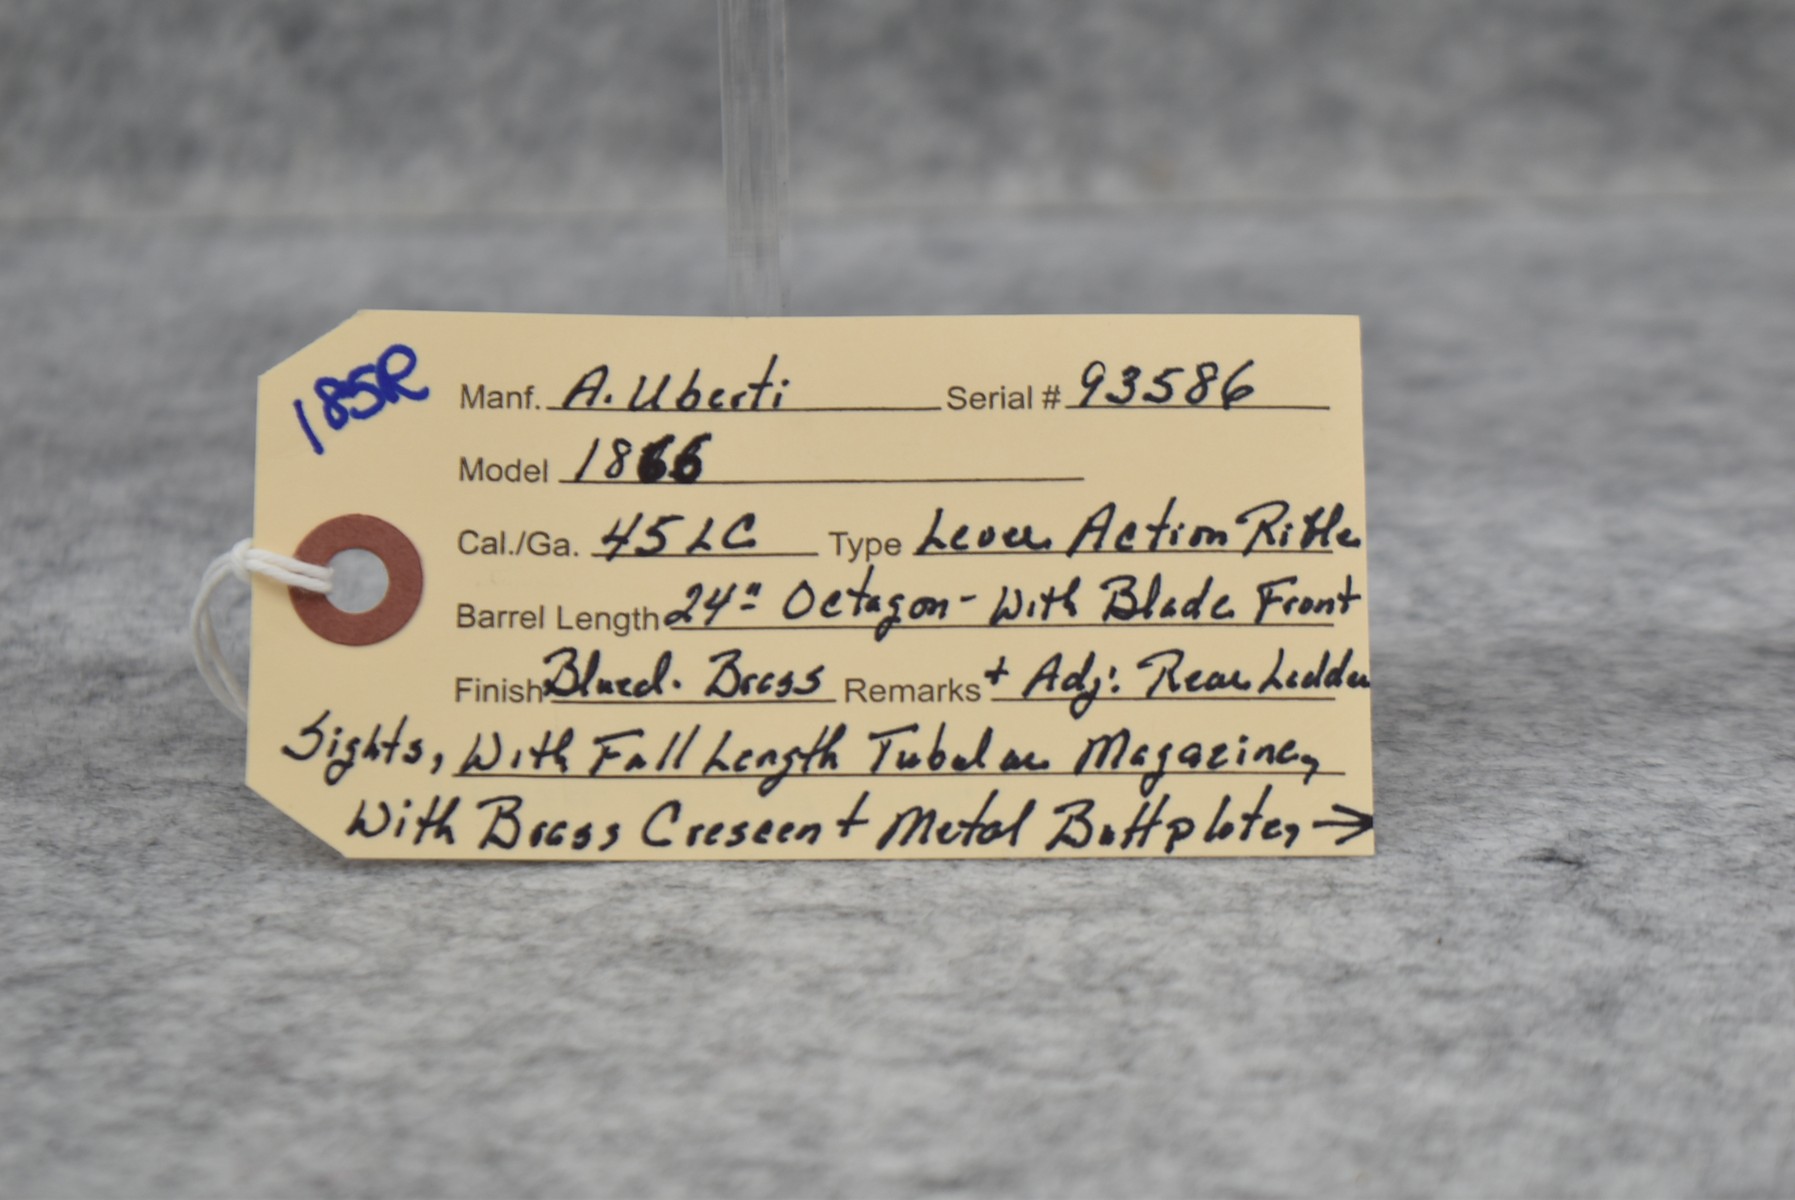 185R
Manf. A. Uberti Serial # 93586
Model 1866
Cal./Ga. 45 LC Type Lever Action Rifle
Barrel Length 24" Octagon - With Blade Front
Finish Blued. Brass Remarks + Adj: Rear Ladder
Sights, With Full Length Tubular Magazine,
With Brass Crescent Metal Buttplate, →